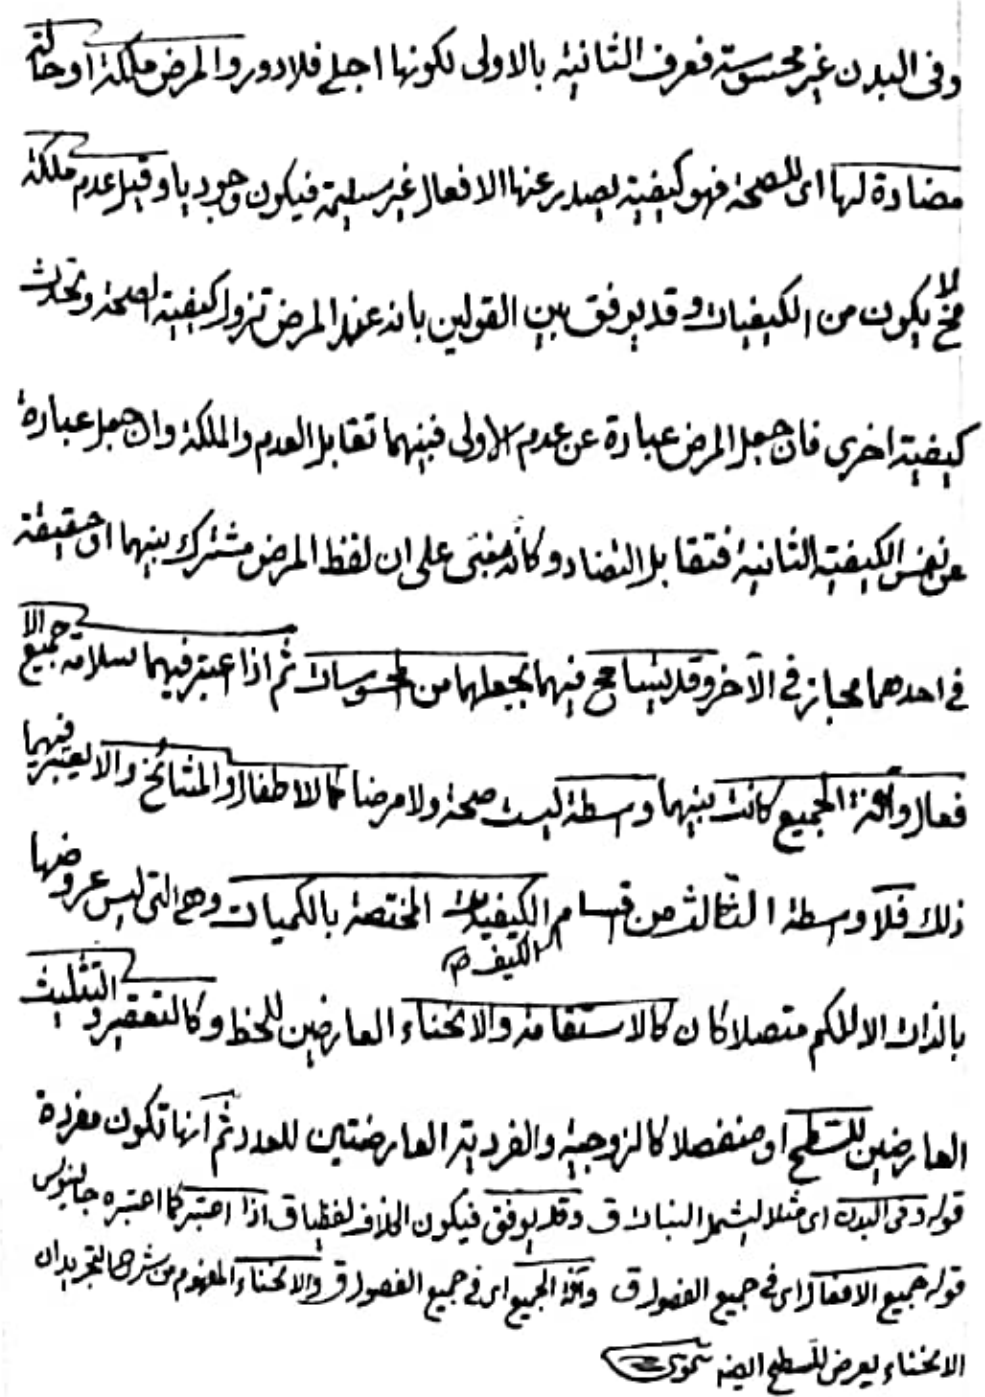 وفى البدن غير محسوسة فعرف الثانية بالاولى لكونها اجلى فلا دور والمرض ملكة او حالة
مضادة لها اى للصحة فهو كيفية يصدر عنها الافعال غير سليمة فيكون وجوديا وقيل عدم ملكة
فح لا يكون من الكيفيات وقد يوفق بين القولين بانه عند المرض تزول كيفية الصحة وتحدث
كيفية اخرى فان جعل المرض عبارة عن عدم الاولى فبينهما تقابل العدم والملكة وان جعل عبارة
عن نفس الكيفية الثانية فتقابل التضاد وكانه مبنى على ان لفظ المرض مشترك بينهما او حقيقة
فى احدهما مجاز فى الآخر وقد يتسامح فيهما بجعلهما من المحسوسات ثم اذا اعتبر فيهما سلامة جميع الا
فعال وآفة الجميع كانت بينهما وسطة ليست صحة ولا مرضا كما للاطفال والمشائخ والا يعتبر فيهما
ذلك فلا وسطة الثالث من قسام الكيفيات المختصة بالكميات وهى التى ليس عروضها
الكيف ص
بالذات الا للكم متصلا كان كالاستقامة والانحناء العارضين للخط وكالتقعير والتثليث
العارضين للسطح او منفصلا كالزوجية والفردية العارضتين للعدد ثم انها تكون مفردة
قوله وفى البدن اى مثلا ليشمل النبات ق وقد يوفق فيكون الخلاف لفظيا ق اذا اعتبر كما اعتبره جالينوس
قوله جميع الافعال اى فى جميع الفصول ق وآفة الجميع اى فى جميع الفصول ق والانحناء المفهوم من شرح التجريد ان
الانحناء يعرض للسطح ايضا